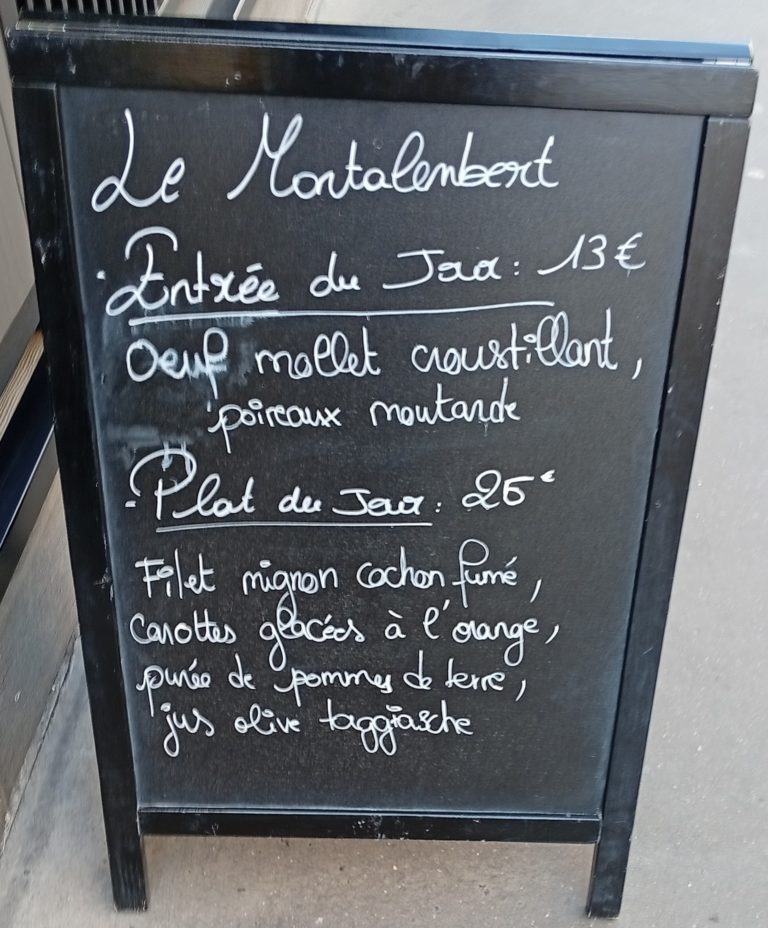 Le Montalembert
· Entrée du Jour : 13 €
Oeuf mollet croustillant,
poireaux moutarde
- Plat du Jour : 26 €
Filet mignon cochon fumé,
carottes glacées à l'orange,
purée de pommes de terre,
jus olive taggiasche